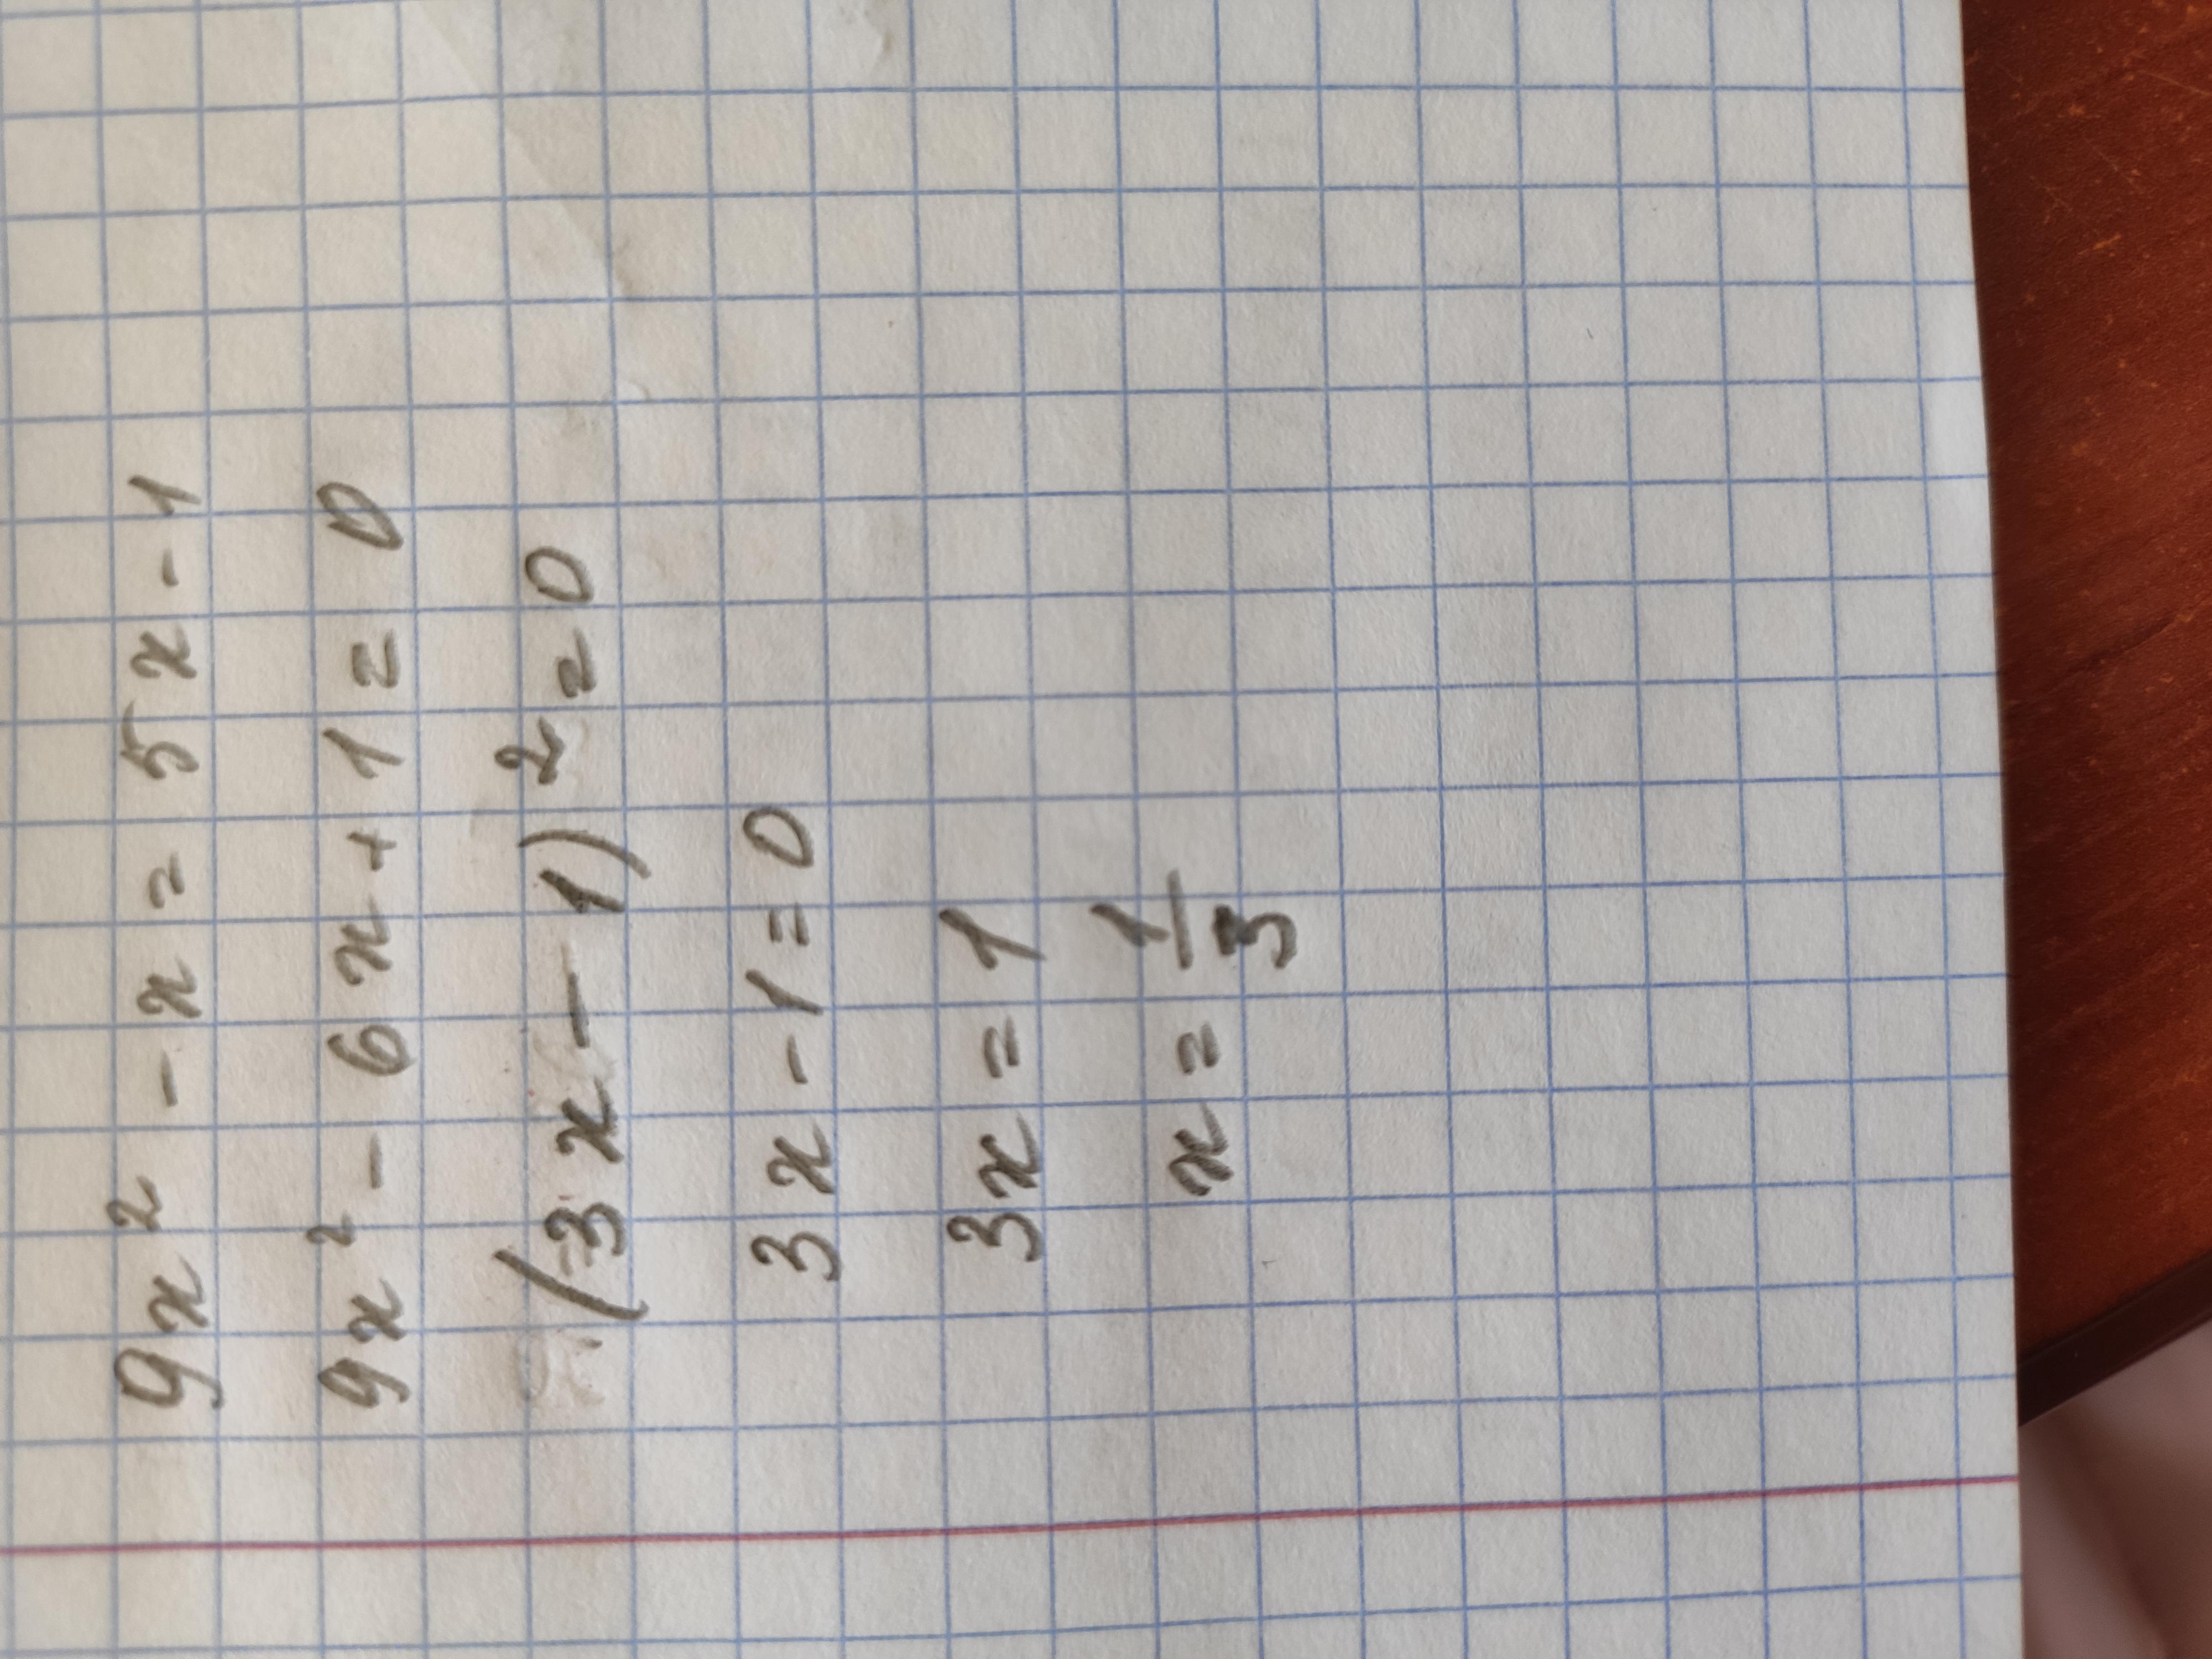 9x² - x = 5x - 1
9x² - 6x + 1 = 0
(3x - 1)² = 0
3x - 1 = 0
3x = 1
x = 1/3